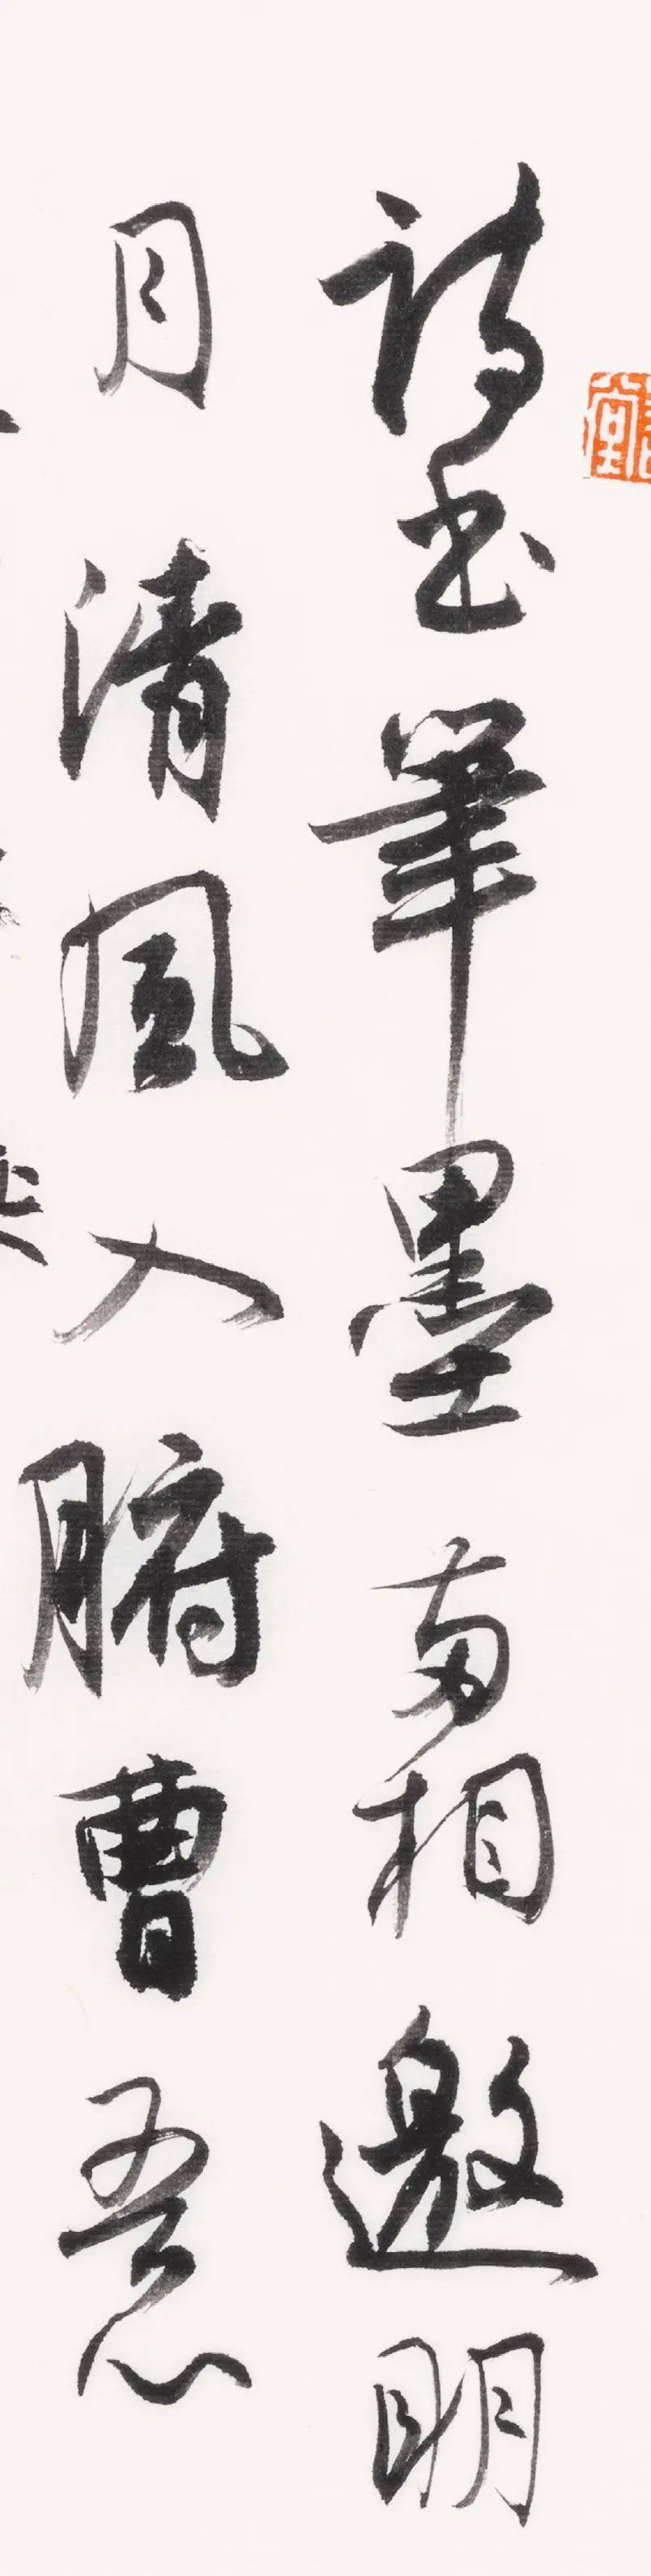 詩書筆墨兩相邀明
月清風入腑曹吾心
堂